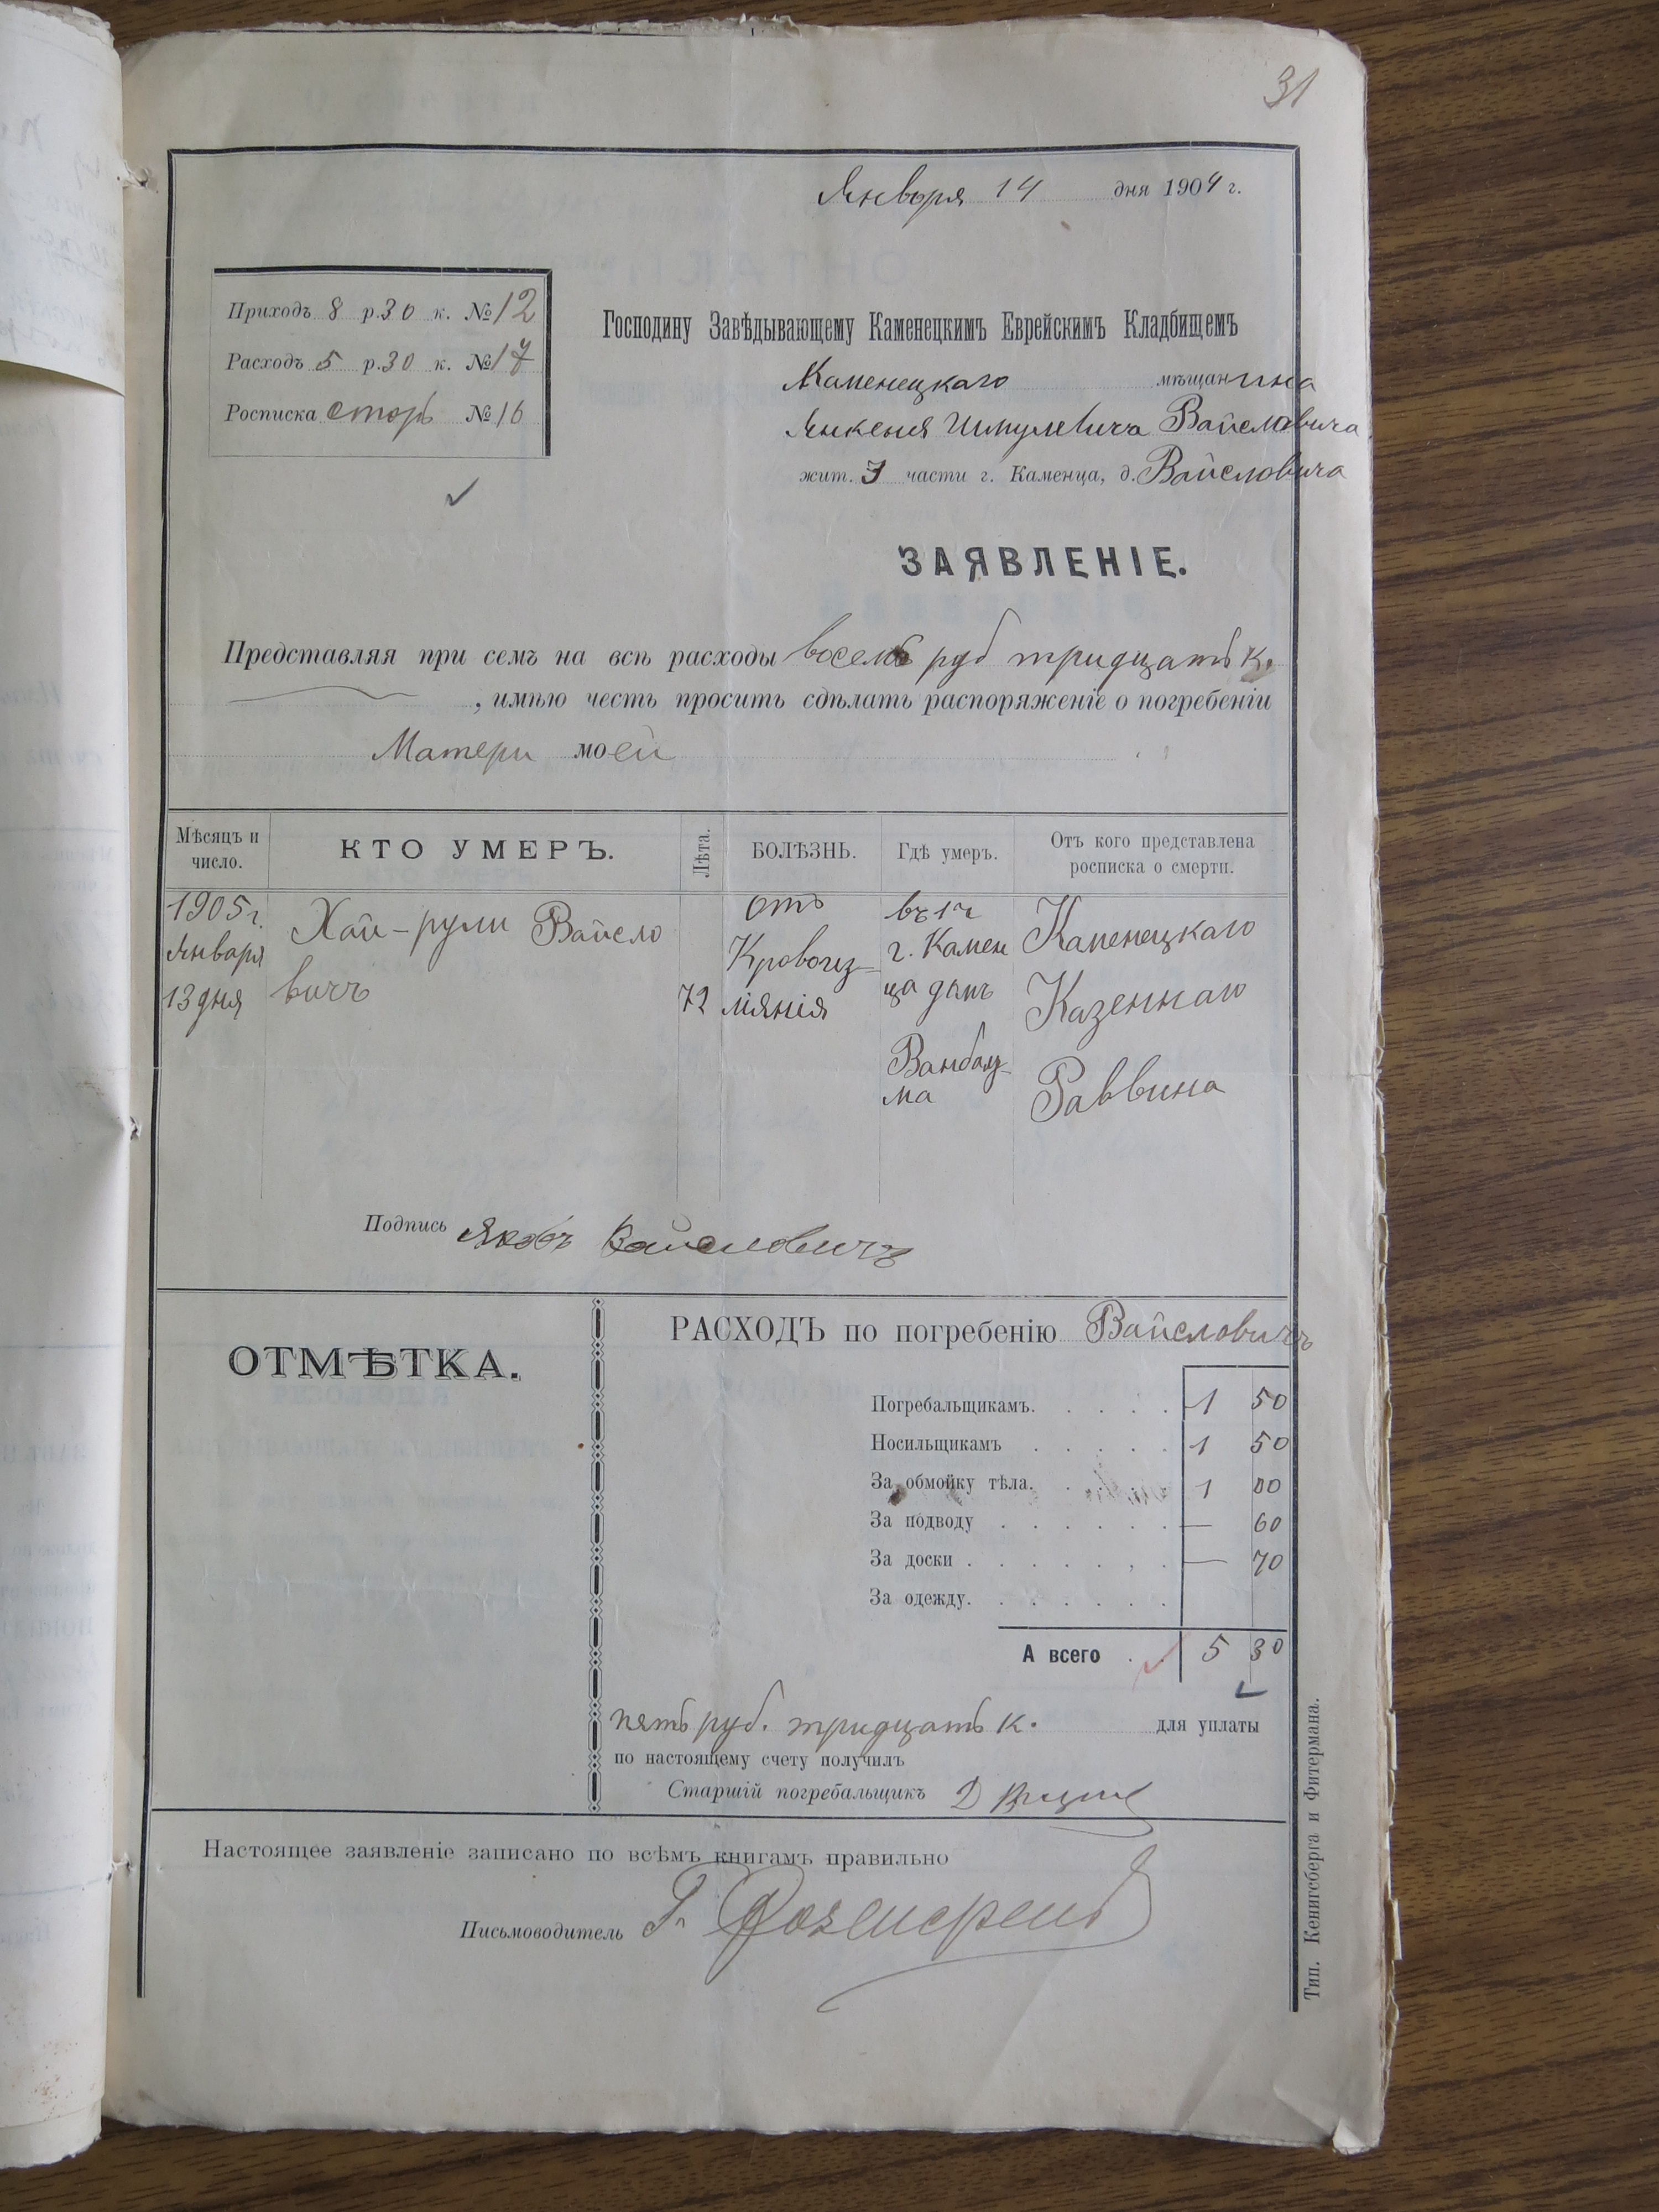 31
Января 14 дня 1904 г.
Приходъ 8 р. 30 к. № 12
Расходъ 5 р. 30 к. № 17
Росписка стор № 16
Господину Завѣдывающему Каменецкимъ Еврейскимъ Кладбищемъ
Каменецкаго мѣщанина
Янкеля Шмулевича Вайсловича
жит. части г. Каменца, д. Вайсловича
ЗАЯВЛЕНІЕ.
Представляя при семъ на всѣ расходы восемь руб тридцать к.
, имѣю честь просить сдѣлать распоряженіе о погребеніи
Матери моей
Мѣсяцъ и число.
КТО УМЕРЪ.
Лѣта.
БОЛѢЗНЬ.
Гдѣ умеръ.
Отъ кого представлена росписка о смерти.
1905 г.
Января
13 дня
Хая-рули Вайсло
вичъ
72
отъ
Кровоиз-
ліянія
въ 1 ч
г. Камен
ца домъ
ма
Каменецкаго
Казеннаго
Раввина
Подпись Яковъ Вайсловичъ
ОТМѢТКА.
РАСХОДЪ по погребенію Вайсловичъ
Погребальщикамъ. . . . . 1 50
Носильщикамъ . . . . . 1 50
За обмойку тѣла. . 1 00
За подводу . . . . . . — 60
За доски . . . . . . . — 70
За одежду. . . . . . .
А всего . . 5 30
пять руб. тридцать к. для уплаты
по настоящему счету получилъ
Старшій погребальщикъ Д
Настоящее заявленіе записано по всѣмъ книгамъ правильно
Письмоводитель Г.
Тип. Кенигсберга и Фитермана.